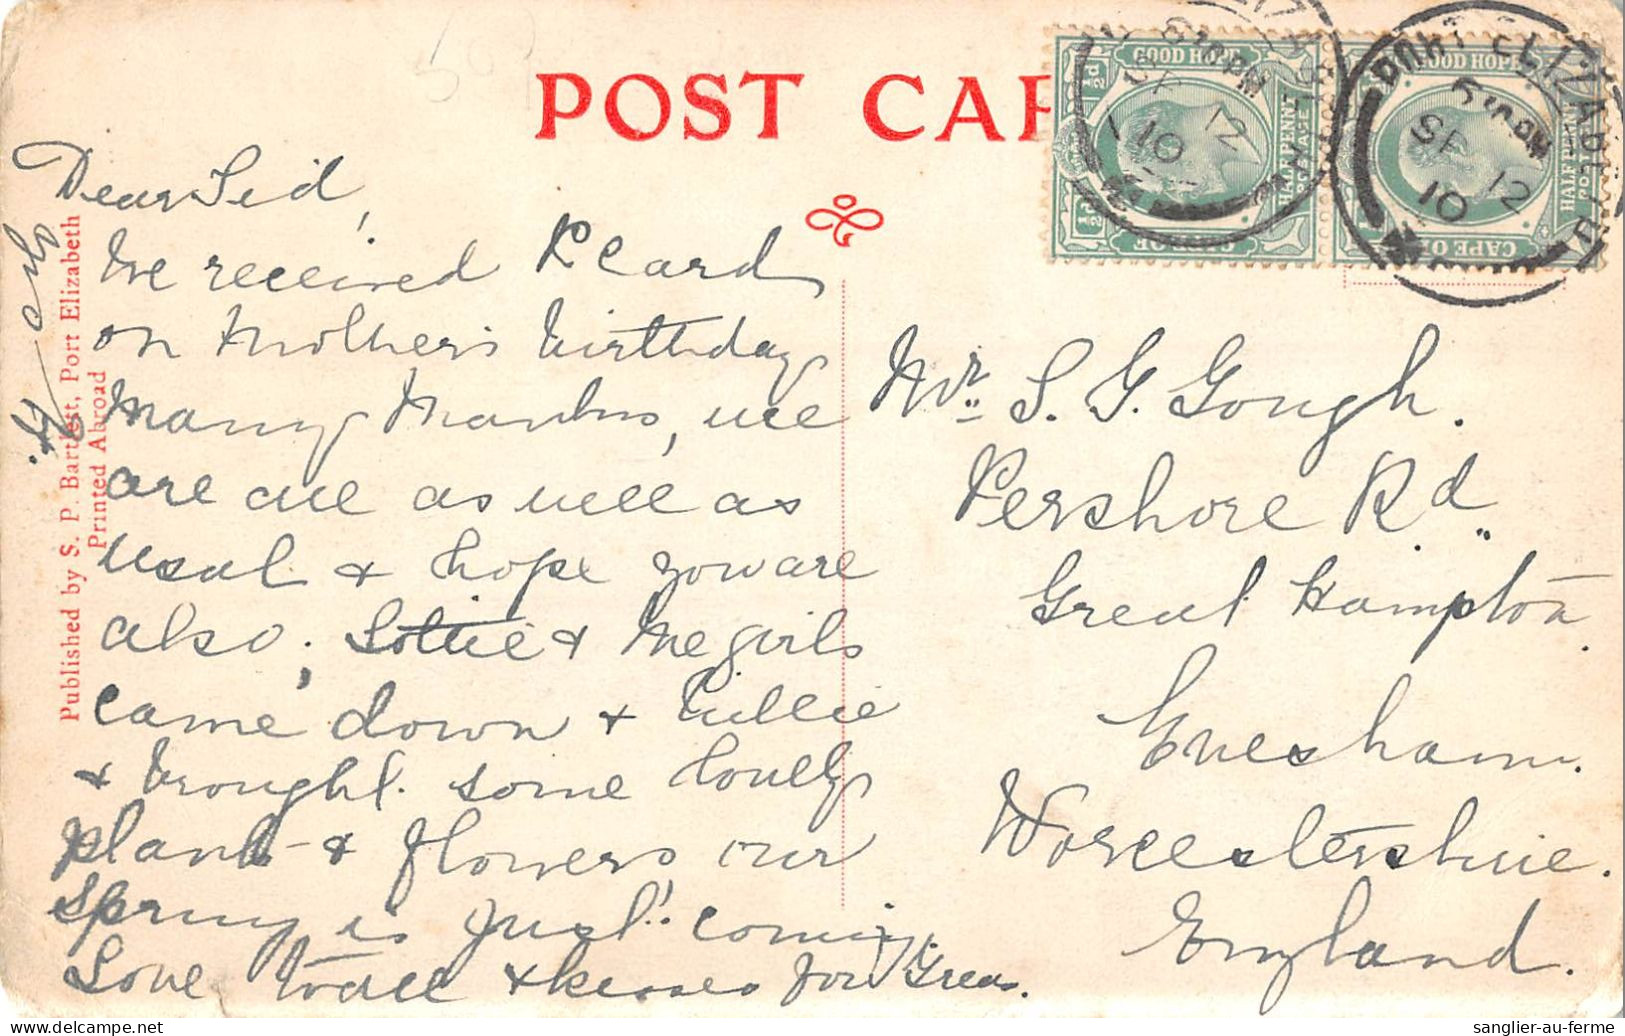 POST CAR
GOOD HOPE
HALFPENNY
POSTAGE
½d
CAPE OF
GOOD HOPE
HALFPENNY
POSTAGE
CAPE OF
PORT ELIZABETH
6 30 PM
SP 12
10
Published by S. P. Bartlett, Port Elizabeth
Printed Abroad
Dear Sid,
We received P Card
on Mothers birthday
Many thanks, we
are all as well as
usual & hope you are
also, Lottie & the girls
came down & Lillie
& brought some lovely
plants & flowers our
spring is just coming
Love to all & kisses for
Mr. S. G. Gough.
Pershore Rd.
Great Hampton.
Evesham.
Worcestershire.
England.
sanglier-au-ferme